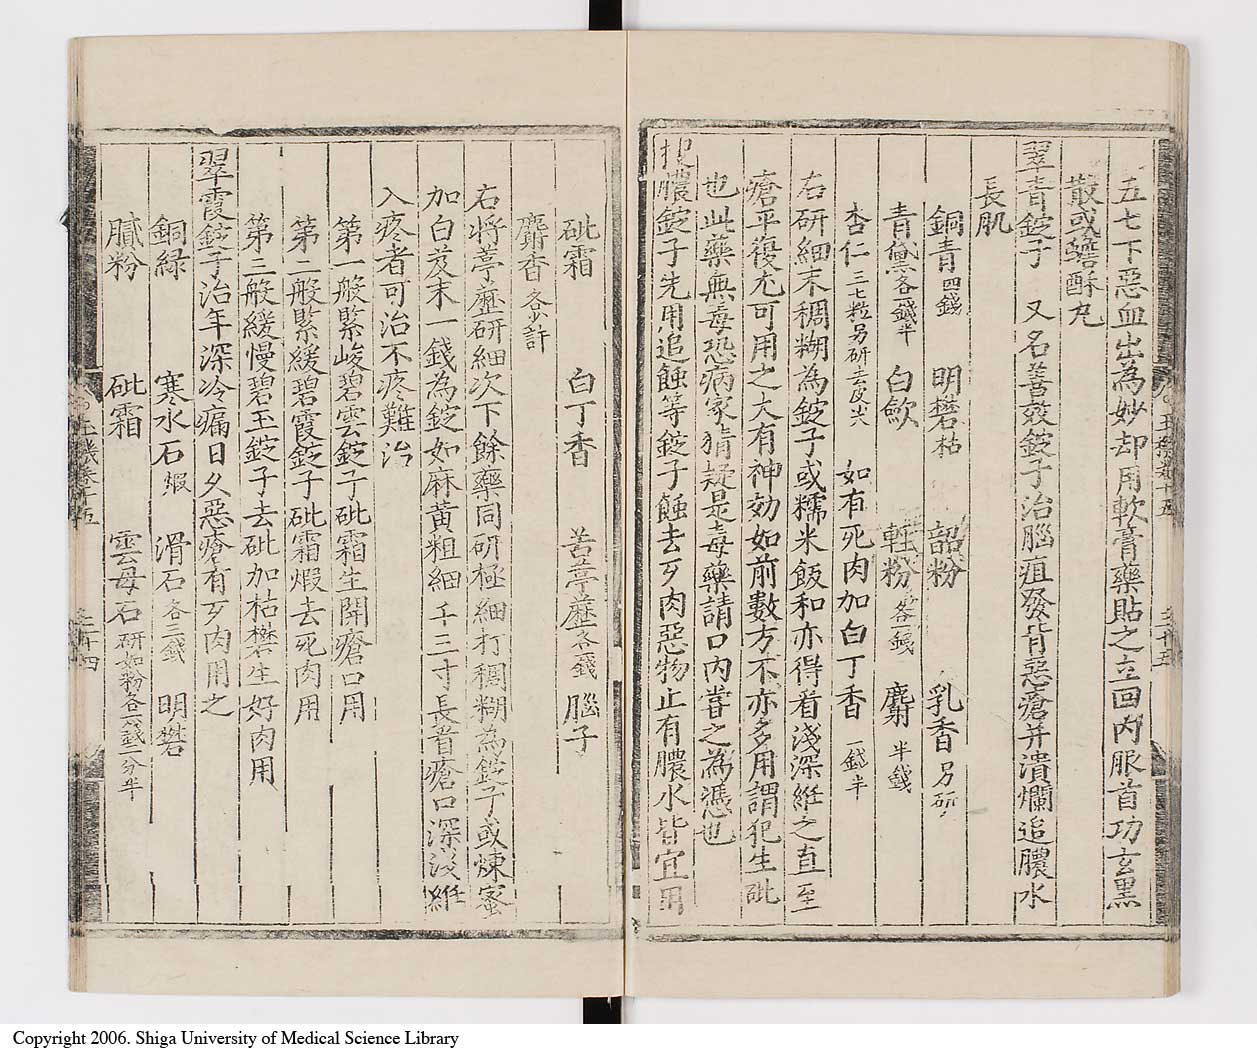 五七下惡血出為妙却用軟膏藥貼之立回内服首功玄黑
散或蟾酥丸
翠青錠子 又名善效錠子治腦疽發背惡瘡并潰爛追膿水
長肌
銅青四錢 明礬枯 韶粉 乳香另研
青黛各一錢半 白歛 輕粉各一錢 麝半錢
杏仁三七粒另研去皮尖 如有死肉加白丁香一錢半
右研細末稠糊為錠子或糯米飯和亦得看淺深絍之直至
瘡平復尤可用之大有神効如前數方不亦多用謂犯生砒
也此藥無毒恐病家猜疑是毒藥請口内嘗之為憑也
膿錠子先用追蝕等錠子蝕去歹肉惡物止有膿水皆宜用
砒霜 白丁香 苦葶藶各一錢 腦子
麝香各少許
右將葶藶研細次下餘藥同研極細打稠糊為錠子或煉蜜
加白芨末一錢為錠如麻黄粗細二三寸長看瘡口深淺絍
入疼者可治不疼難治
第一般緊峻碧雲錠子砒霜生開瘡口用
第二般緊緩碧霞錠子砒霜煅去死肉用
第三般緩慢碧玉錠子去砒加枯礬生好肉用
翠霞錠子治年深冷痛日久惡瘡有歹肉用之
銅緑 寒水石煅 滑石各三錢 明礬
膩粉 砒霜 雲母石研如粉各一錢二分半
玉機卷十五
玉機卷十五
Copyright 2006. Shiga University of Medical Science Library